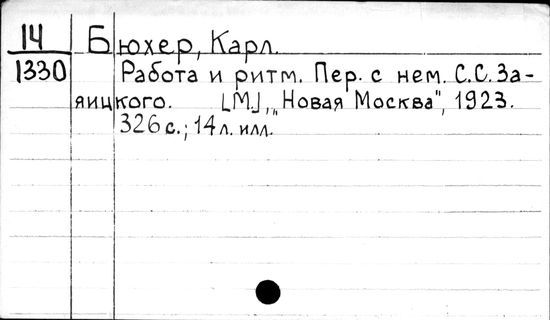 14 Бюхер, Карл.
1330 Работа и ритм. Пер. с нем. С.С. За-
яицкого. [М.], „Новая Москва", 1923.
326 с.; 14 л. илл.